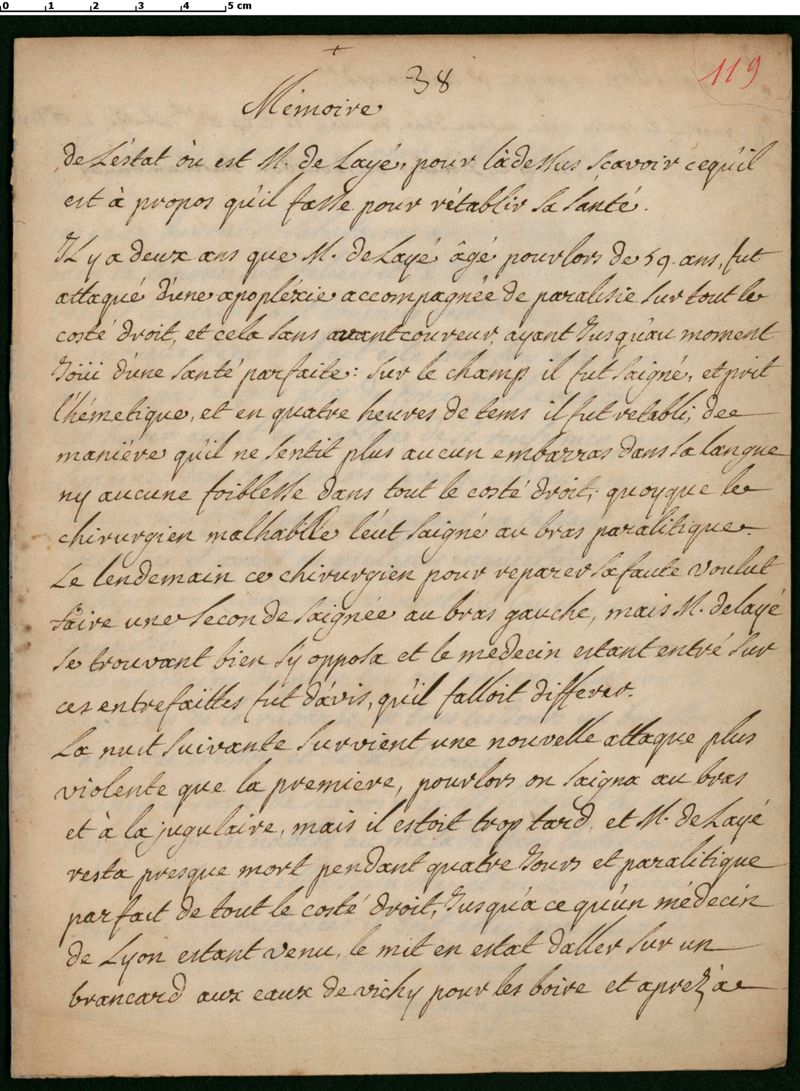 0 1 2 3 4 5 cm
+
38
119
Mémoire
de L'éstat òu est M. de Layé, pour làdessus scavoir cequ'il
est à propos qu'il fasse pour rétablir sa santé.
Il y a deux ans que M. de Layé âgé pourlors de 59. ans, fut
attaqué d'une apopléxie accompagnée de paralisie sur tout le
costé droit, et cela sans avantcoureur, ayant Jusqu'au moment
Joüi d'une santé parfaite: sur le champ il fut saigné, et prit
l'hémetique, et en quatre heures de tems il fut retabli, de
maniére qu'il ne sentit plus aucun embarras dans sa langue
ny aucune foiblesse dans tout le costé droit; quoyque le
chirurgien malhabille léut saigné au bras paralitique.
Le lendemain ce chirurgien pour reparer sa faute voulut
faire une seconde saignée au bras gauche, mais M. de layé
se trouvant bien s'y opposa et le médecin estant entré sur
ces entrefaittes fut d'avis, qu'il falloit differer.
La nuit suivante survient une nouvelle attaque plus
violente que la premiere, pourlors on saigna au bras
et à la jugulaire, mais il estoit trop tard, et M. de Layé
resta presque mort pendant quatre Jours et paralitique
parfait de tout le costé droit, Jusqu'a ce qu'un médecin
de Lyon estant venu, le mit en estat d'aller sur un
brancard aux eaux de vichy pour les boire et aprez a